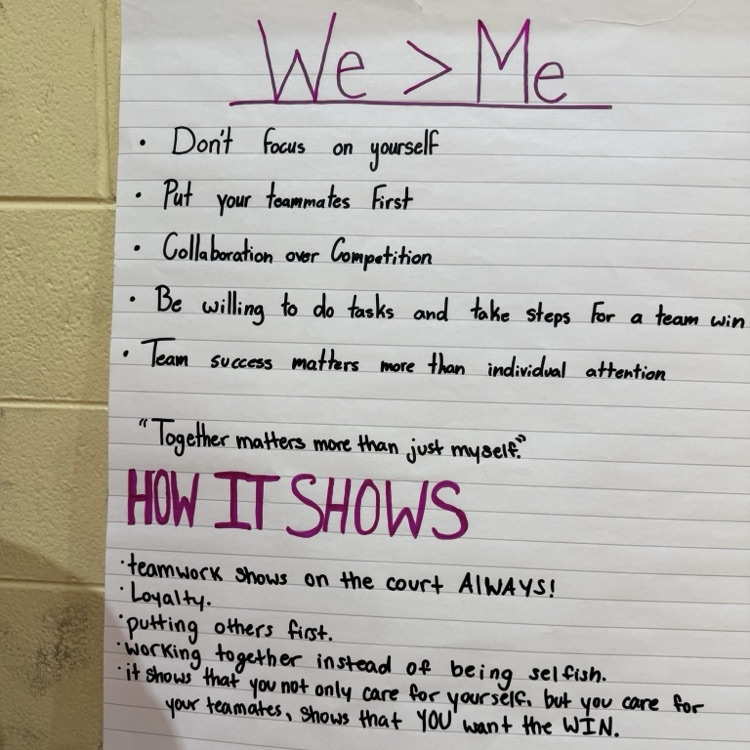 We > Me
• Don't focus on yourself
• Put your teammates First
• Collaboration over Competition
• Be willing to do tasks and take steps for a team win
• Team success matters more than individual attention
"Together matters more than just myself."
HOW IT SHOWS
• teamwork shows on the court AlWAYS!
• Loyalty.
• putting others first.
• working together instead of being selfish.
• it shows that you not only care for yourself, but you care for
your teamates, shows that YOU want the WIN.